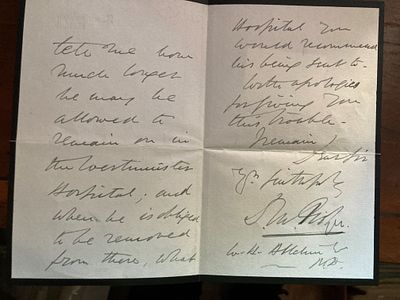 tell me how
much longer
he may be
allowed to
remain on in
the Westminster
Hospital; and
when he is obliged
to be removed
from there, what
Hospital you
would recommend
his being sent to.
With apologies
for giving you
this trouble.
I remain
Dear Sir
Yrs faithfully
W. H. Allchin
M.D.